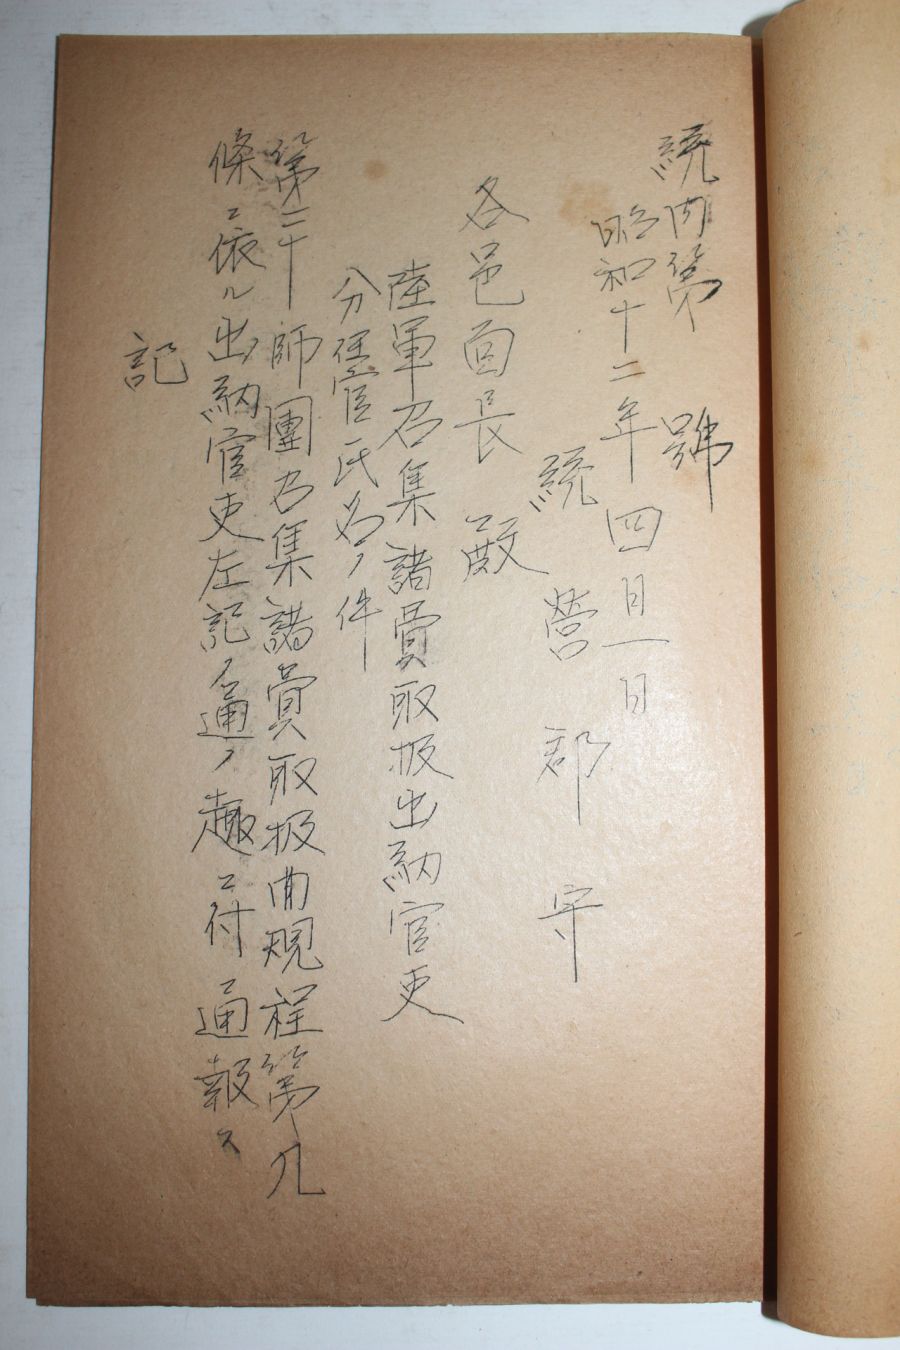 統內第　號
昭和十二年四月一日
統營郡守
各邑面長 殿
陸軍召集諸員取扱出納官吏
分任官氏名ノ件
第二十師團召集諸員取扱內規程第九
條ニ依ル出納官吏左記ノ通ノ趣ニ付通報ス
記